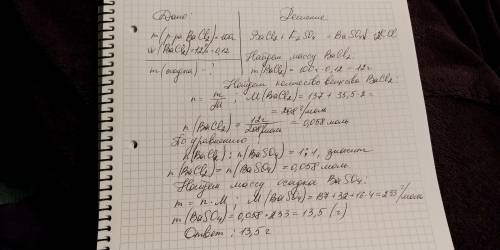 Дано:
m(р-ра BaCl2)=100г
w(BaCl2)=12%=0,12
m(осадка) - ?
Решение
BaCl2 + K2SO4 = BaSO4↓ + 2KCl
Найдем массу BaCl2:
m(BaCl2) = 100·0,12 = 12г
Найдем количество вещества BaCl2:
n = m/M ; M(BaCl2) = 137 + 35,5·2 =
= 208 г/моль
n(BaCl2) = 12г / 208г/моль = 0,058 моль
По уравнению
n(BaCl2) : n(BaSO4) = 1:1, значит
n(BaCl2) = n(BaSO4) = 0,058 моль
Найдем массу осадка BaSO4:
m = n·M ; M(BaSO4) = 137 + 32 + 16·4 = 233 г/моль
m(BaSO4) = 0,058·233 = 13,5 (г)
Ответ: 13,5г